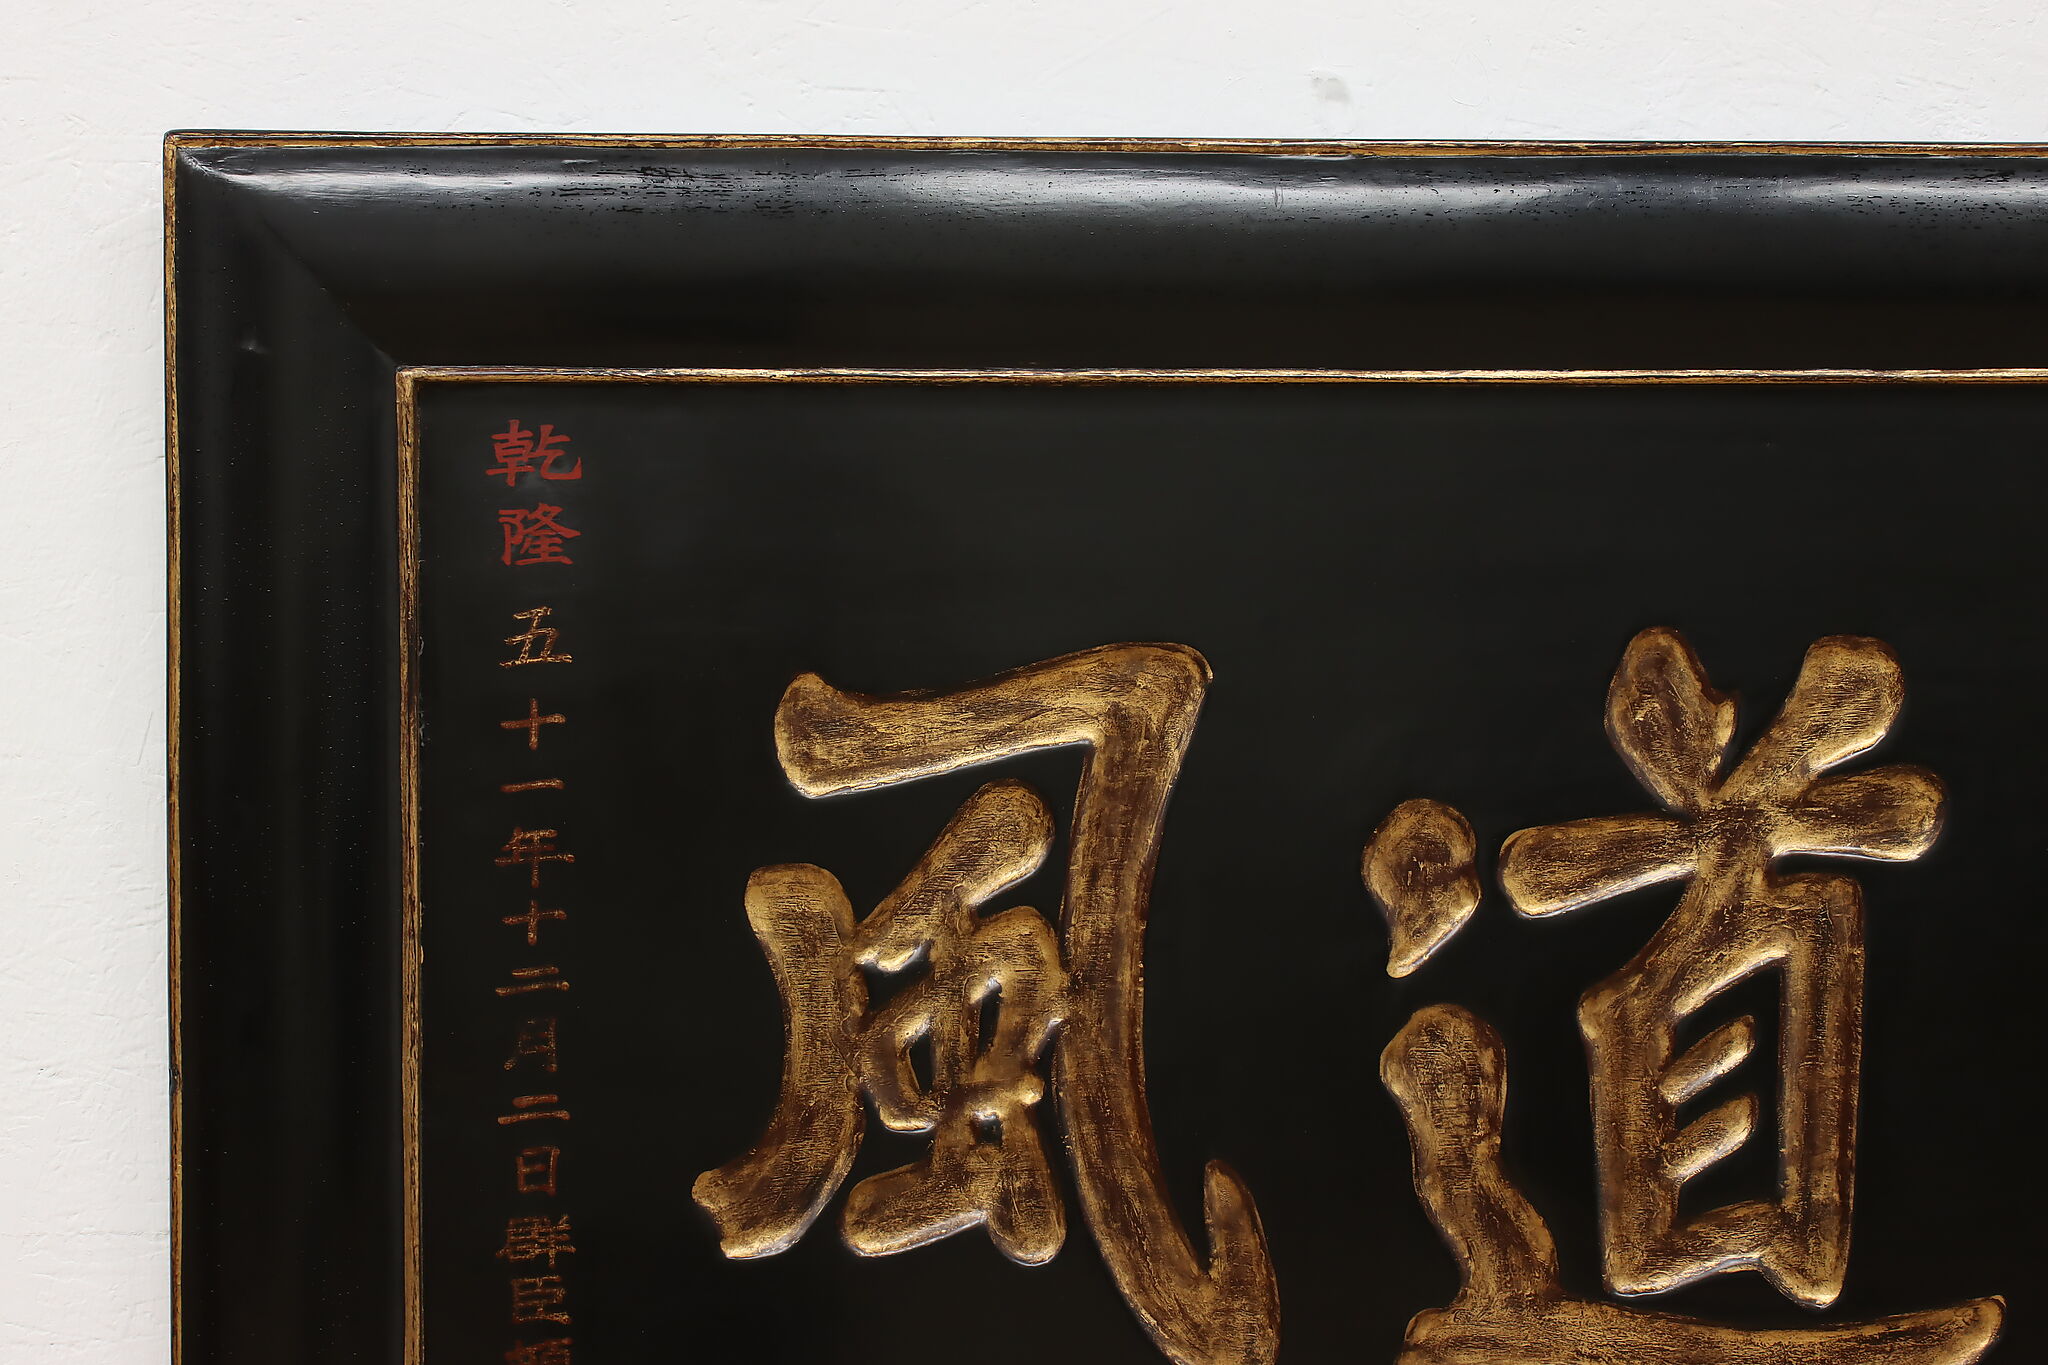 道風
乾隆五十一年十二月二日群臣